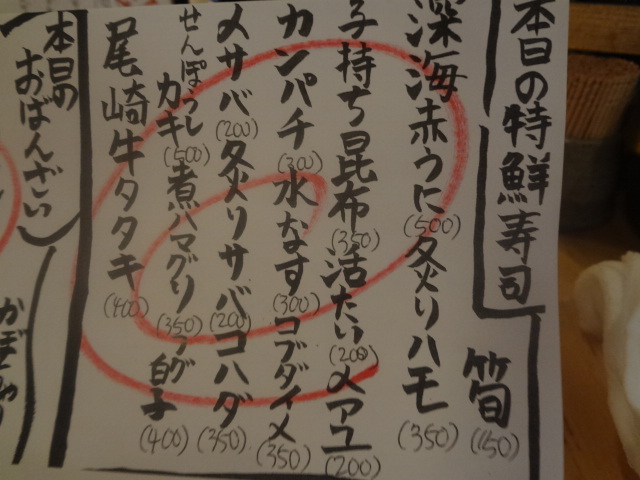 本日の特鮮寿司
筍(150)
深海赤うに(500)炙りハモ(350)
子持ち昆布(350)活たい(200)〆アユ(200)
カンパチ(300)水なす(300)コブダイ〆(350)
〆サバ(200)炙りサバ(200)コハダ(350)
せんぽうし
カキ(500)煮ハマグリ(350)フグ白子(400)
尾崎牛タタキ(400)
本日の
おばんざい